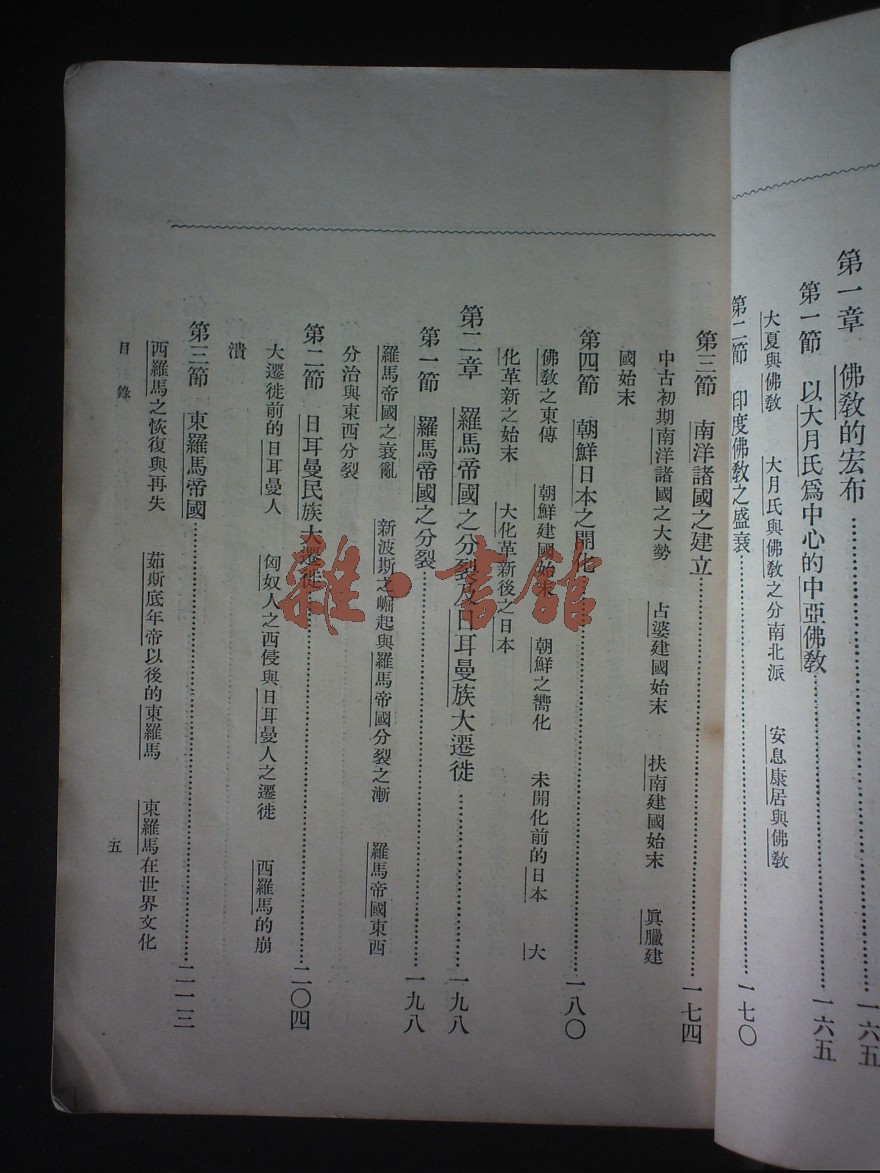 第一章　佛敎的宏布……一六五
第一節　以大月氏爲中心的中亞佛敎……一六五
大夏與佛敎　大月氏與佛敎之分南北派　安息康居與佛敎
第二節　印度佛敎之盛衰……一七〇
第三節　南洋諸國之建立……一七四
中古初期南洋諸國之大勢　占婆建國始末　扶南建國始末　眞臘建
國始末
第四節　朝鮮日本之開化……一八〇
佛敎之東傳　朝鮮建國始末　朝鮮之嚮化　未開化前的日本　大
化革新之始末　大化革新後之日本
第二章　羅馬帝國之分裂及日耳曼族大遷徙……一九八
第一節　羅馬帝國之分裂……一九八
羅馬帝國之衰亂　新波斯之崛起與羅馬帝國分裂之漸　羅馬帝國東西
分治與東西分裂
第二節　日耳曼民族大遷徙……二〇四
大遷徙前的日耳曼人　匈奴人之西侵與日耳曼人之遷徙　西羅馬的崩
潰
第三節　東羅馬帝國……二一三
西羅馬之恢復與再失　茹斯底年帝以後的東羅馬　東羅馬在世界文化
目錄　五
雜·書館